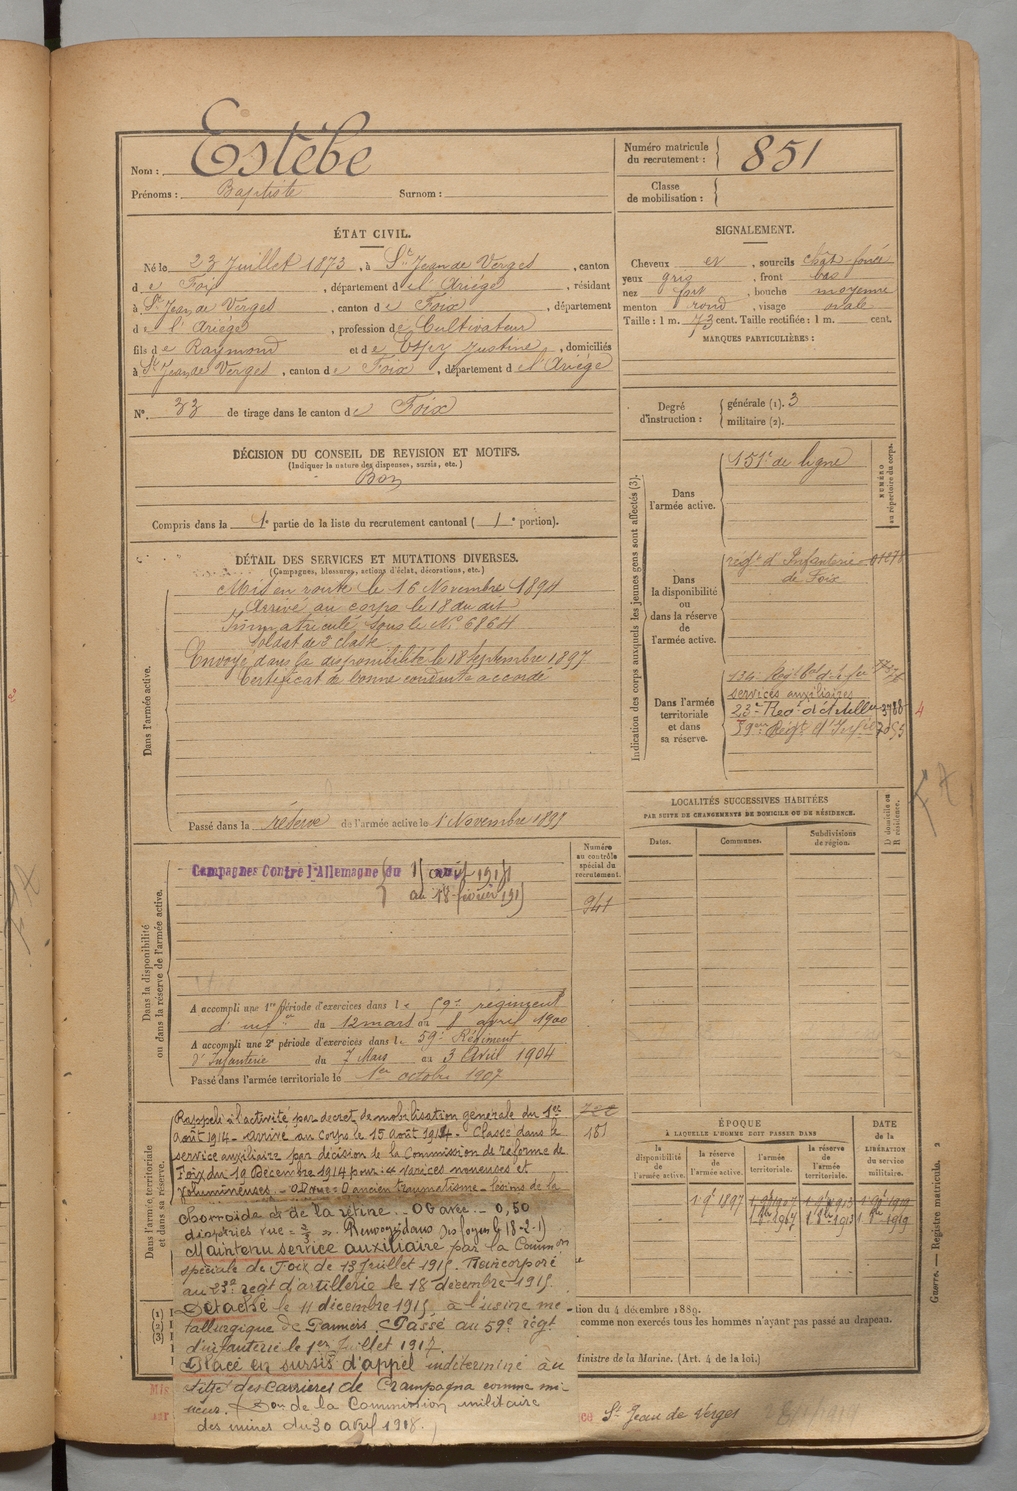 Nom : Estèbe
Prénoms : Baptiste Surnom :
Numéro matricule du recrutement : 851
Classe de mobilisation :
ÉTAT CIVIL.
Né le 23 Juillet 1873, à St Jean de Verges, canton
de Foix, département de l'Ariége, résidant
à St Jean de Verges, canton de Foix, département
de l'Ariége, profession de Cultivateur
fils de Raymond et de Espy Justine, domiciliés
à St Jean de Verges, canton de Foix, département de l'Ariége
N° 33 de tirage dans le canton de Foix
SIGNALEMENT.
Cheveux et, sourcils chât-foncé
yeux gris, front bas
nez fort, bouche moyenne
menton rond, visage ovale
Taille : 1 m. 73 cent. Taille rectifiée : 1 m. cent.
MARQUES PARTICULIÈRES :
Degré d'instruction : générale (1). 3
militaire (2).
DÉCISION DU CONSEIL DE REVISION ET MOTIFS.
(Indiquer la nature des dispenses, sursis, etc.)
Bon
Compris dans la 1e partie de la liste du recrutement cantonal (1e portion).
DÉTAIL DES SERVICES ET MUTATIONS DIVERSES.
(Campagnes, blessures, actions d'éclat, décorations, etc.)
Dans l'armée active.
Mis en route le 16 Novembre 1894
Arrivé au corps le 18 du dit
Immatriculé sous le N° 6864
Soldat de 2e classe
Envoyé dans la disponibilité le 18 Septembre 1897
Certificat de bonne conduite accordé
Passé dans la réserve de l'armée active le 1 Novembre 1897
Indication des corps auxquels les jeunes gens sont affectés (3).
NUMÉRO au répertoire du corps.
Dans l'armée active.
151e de ligne
Dans la disponibilité ou dans la réserve de l'armée active.
régt d'Infanterie
de Foix
Dans l'armée territoriale et dans sa réserve.
services auxiliaires
23e Regt d'artillerie 3788
59eme Régt d'Infie
LOCALITÉS SUCCESSIVES HABITÉES
PAR SUITE DE CHANGEMENTS DE DOMICILE OU DE RÉSIDENCE.
Dates. Communes. Subdivisions de région.
D domicile ou R résidence.
Dans la disponibilité ou dans la réserve de l'armée active.
Numéro au contrôle spécial du recrutement.
941
Campagnes Contre l'Allemagne du 15 août 1914
au 18 février 1915
A accompli une 1re période d'exercices dans le 59e régiment
d'infie du 12 mars au 8 avril 1900
A accompli une 2e période d'exercices dans le 59e Régiment
d'Infanterie du 7 Mars au 3 Avril 1904
Passé dans l'armée territoriale le 1er octobre 1907
Dans l'armée territoriale et dans sa réserve.
181
Rappelé à l'activité par decret de mobilisation générale du 1er
Août 1914 - Arrivé au Corps le 15 Août 1914 - Classé dans le
service auxiliaire par décision de la Commission de réforme de
Foix du 19 Décembre 1914 pour varices noueuses et
volumineuses - O D vue = 0 ancien traumatisme - lésions de la
Chorroïde et de la rétine. - O G avec - 0,50
dioptries vue = Renvoyé dans ses foyers le 18-2-15
Maintenu service auxiliaire par la Common
spéciale de Foix de 13 Juillet 1915. Réincorporé
au 23e regt d'artillerie le 18 décembre 1915.
Détaché le 11 décembre 1915, à l'usine mé
tallurgique de Pamiers. Passé au 59e régt
d'infanterie le 1er Juillet 1917.
Placé en sursis d'appel indéterminé au
titre des Carrières de Crampagna comme mi-
neur. Don de la Commission militaire
des mines du 30 avril 1918.
ÉPOQUE
À LAQUELLE L'HOMME DOIT PASSER DANS
la disponibilité de l'armée active. la réserve de l'armée active. l'armée territoriale. la réserve de l'armée territoriale.
DATE de la LIBÉRATION du service militaire.
(1)
(2)
(3)
tion du 4 décembre 1889.
comme non exercés tous les hommes n'ayant pas passé au drapeau.
Ministre de la Marine. (Art. 4 de la loi.)
St Jean de Verges
Guerre. — Registre matricule. 2